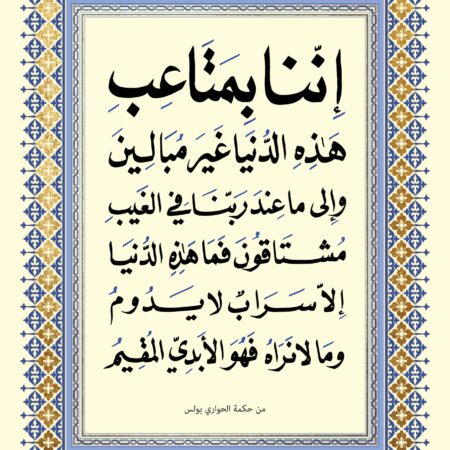 إِنّنا بِمَتَاعِبِ
هَٰذِهِ الدُّنيَا غَيرَ مُبَالِينَ
وإِلى ما عِندَ ربّنَا في الغَيبِ
مُشتَاقُونَ فَمَا هَٰذِهِ الدُّنيَا
إِلاّ سَرَابٌ لا يَدُومُ
وما لا نرَاه فَهُوَ الأبَدِيّ المُقِيمُ
من حكمة الحواري بولس